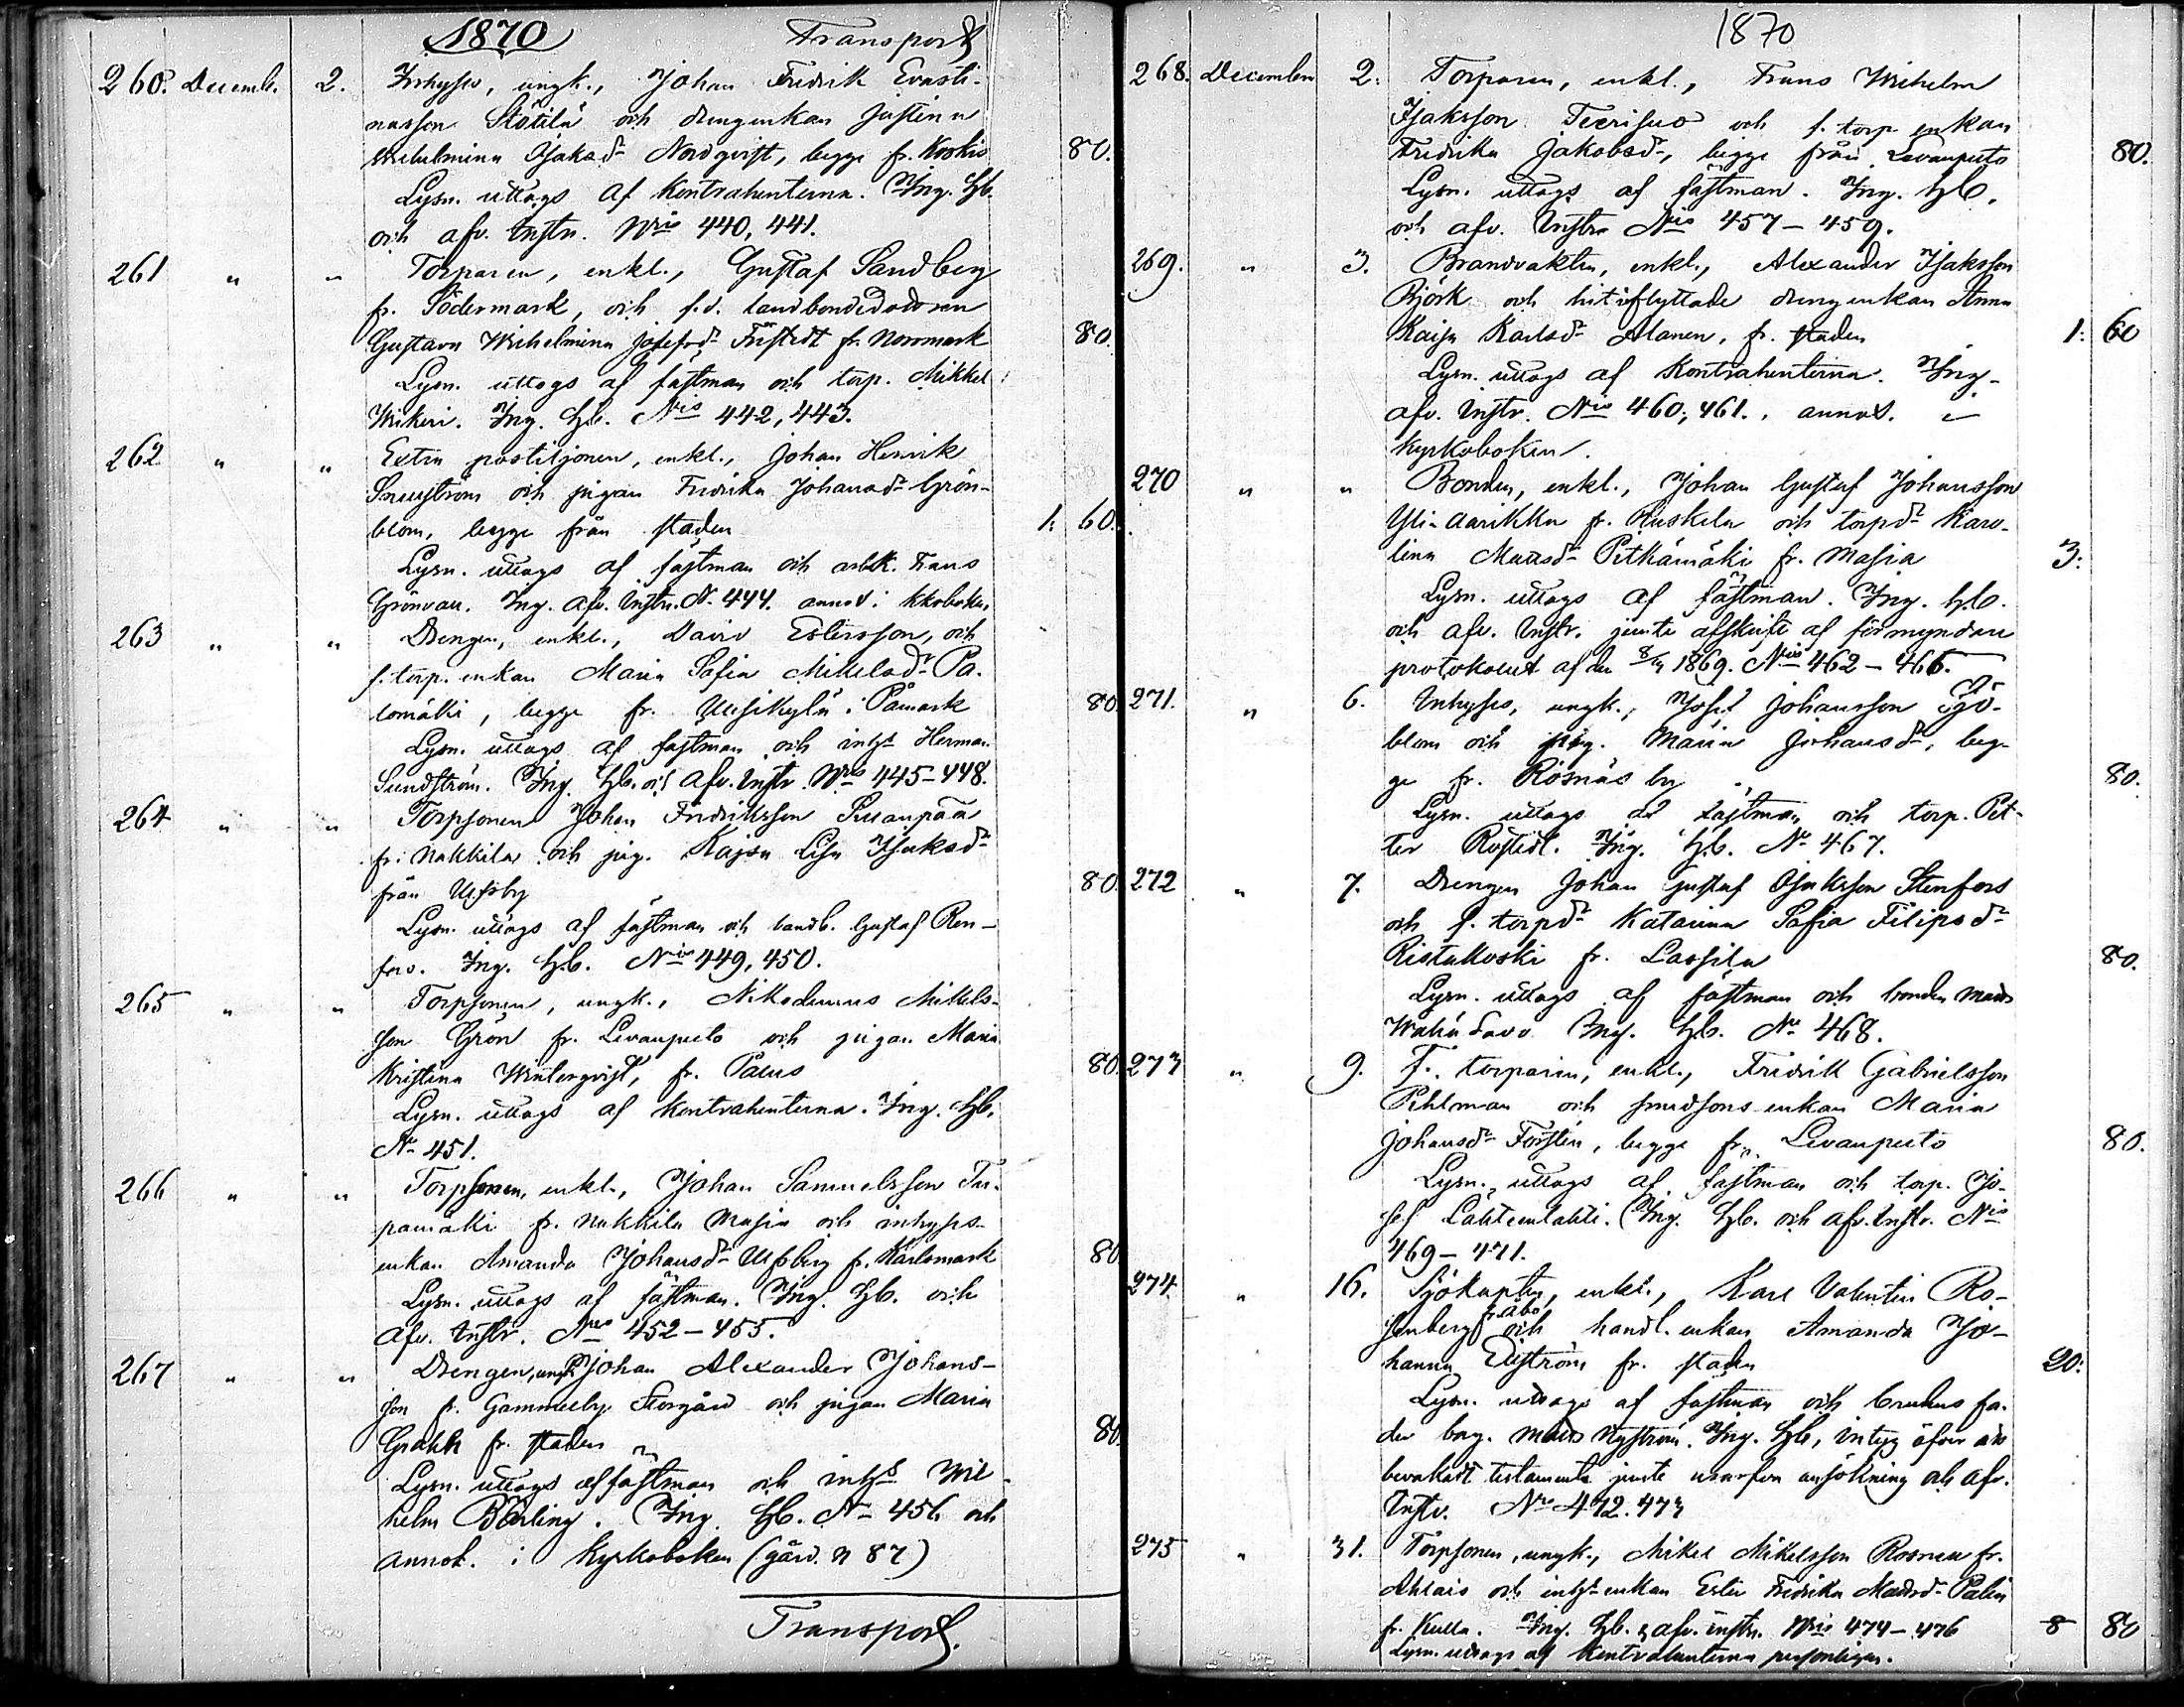 1870 Transport
260. Decemb. 2. Inhyses, ungk., Johan Fredrik Evasti-
nasson Slötilä och drengenkan Justina
Wilhelmina Isaksdr Nordqvist, begge fr. Koskis 80.
Lysn. uttogs af kontrahenterna. Ing. hfb.
och afv. instr. Nris 440, 441.
261 " " Torparen, enkl., Gustaf Sandberg
fr. Södermark, och f.d. landbondedottren
Gustava Wilhelmina Josefsdr Fristedt fr. Norrmark 80.
Lysn. uttogs af fästman och torp. Mikkel
Wikeri. Ing. hfb. Nris 442, 443.
262 " " Extra postiljonen, enkl., Johan Henrik
och pigan Fredrika Johansdr Grön-
blom, begge från staden 1: 60.
Lysn. uttogs af fästman och arbk. Frans
Grönvall. Ing. afv. instr. No 444. annot i kkoboken
263 " " Drengen, enkl., David Estersson, och
f. torp. enkan Maria Sofia Mikelsdr Pa-
lomäki, begge fr. Uusikylä i Påmark 80.
Lysn. uttogs af fästman och inhs Herman
Sundström. Ing. hfb. och afv. instr. Nris 445-448.
264 " " Torpsonen Johan Fredriksson
fr. Nakkila och pig. Kajsa Lisa Isaksdr
från Ulfsby 80.
Lysn. uttogs af fästman och landb. Gustaf Ren-
fors. Ing. hfb. Nris 449, 450.
265 " " Torpsonen, ungk., Nikodemus Mikels-
son Grön fr. Levanpelto och pigan Maria
Kristina Winterqvist, fr. Palus 80.
Lysn. uttogs af kontrahenterna. Ing. hfb.
No 451.
266 " " Torpsonen, enkl., Johan Samuelsson Tu-
pamäki fr. Nakkila Masia och inhyses-
enkan Amanda Johansdr Ulfsberg fr. Karlsmark 80
Lysn. uttogs af fästman. Ing. hfb. och
afv. instr. Nris 452-455.
267 " " Drengen, ungk Johan Alexander Johans-
son fr. Gammelby Storgård och pigan Maria
Grahk fr. staden 80.
Lysn. uttogs af fästman och inhs Wil-
helm Bärling. Ing. hfb. No 456 och
annot. i kyrkoboken (gård. N 87)
Transport.
1870
268. December 2. Torparen, enkl., Frans Wilhelm
Isaksson Teerisuo och f. torp. enkan
Fredrika Jakobsdr, begge från Levanpelto 80.
Lysn. uttogs af fästman. Ing. hfb.
och afv. instr. Nris 457-459.
269. " 3. Brandvakten, enkl., Alexander Isaksson
Björk och hitinflyttade drengenkan Anna
Kajsa Karlsdr Alanen, fr. staden 1: 60
Lysn. uttogs af kontrahenterna. Ing.
afv. instr. Nris 460, 461., annot. i
kyrkoboken.
270 " " Bonden, enkl., Johan Gustaf Johansson
Yli-Aarikka fr. Ruskela och torpdr Karo-
lina Matsdr Pitkämäki fr. Masia 3:
Lysn. uttogs af fästman. Ing. hfb.
och afv. instr. jemte afskrift af förmyndare
protokollet af den 1869. Nris 462-466.
271. " 6. Inhyses, ungk., Josef Johansson Sjö-
blom och pig. Maria Johansdr, beg-
ge fr. Rosnäs by 80.
Lysn. uttogs af fästman och torp. Pet-
ter Rostedt. Ing. hfb. No 467.
272 " 7. Drengen Johan Gustaf Isaksson Stenfors
och f. torpdr Katarina Sofia Filipsdr
Ristakoski fr. Lassila 80.
Lysn. uttogs af fästman och bonden Mats
Ing. hfb. No 468.
273 " 9. F. torparen, enkl., Fredrik Gabrielsson
Pihlman och smedsons enkan Maria
Johansdr Forstén, begge fr. Levanpelto 80.
Lysn. uttogs af fästman och torp. Jo-
sef Lahtenlahti. Ing. hfb. och afv. instr. Nris
469-471.
274 " 16. Sjökapten, enkl., Karl Valentin Ro-
senberg fr. Åbo och handl. enkan Amanda Jo-
hanna Ekström fr. staden 20:
Lysn. uttogs af fästman och brudens fa-
der borg. Mats Nyström. Ing. hfb, intyg öfver
bevakadt testamente jemte ansökning och afv.
instr. Nris 472. 473
275 " 31. Torpsonen, ungk., Mikel Mikelsson Rosnell fr.
Ahlais och inhs enkan Ester Fredrika Matsdr Palin
fr. Kulla. Ing. hfb. & afv. instr. Nris 474-476 8 80
Lysn. uttogs af kontrahenterna personligen.